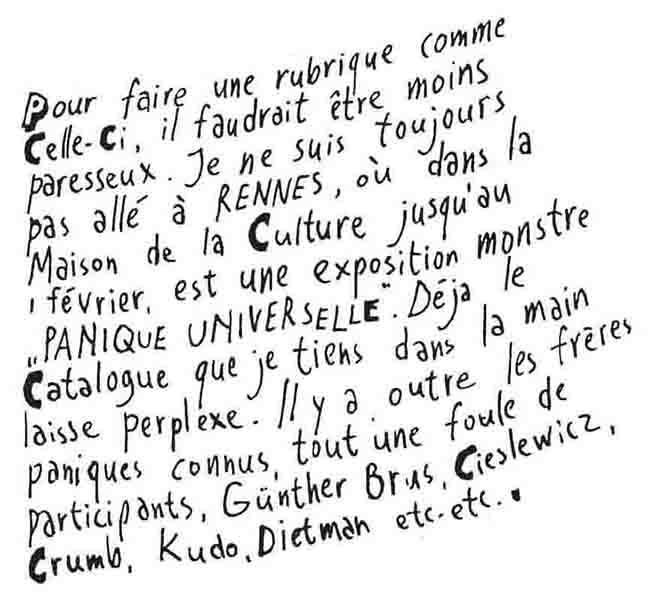 Pour faire une rubrique comme
Celle-Ci, il faudrait être moins
paresseux. Je ne suis toujours
pas allé à RENNES, où dans la
Maison de la Culture jusqu'au
1 février, est une exposition monstre
„PANIQUE UNIVERSELLE". Déja le
Catalogue que je tiens dans la main
laisse perplexe. Il y a outre les frères
paniques connus, tout une foule de
participants, Günther Brus, Cieslewicz,
Crumb, Kudo, Dietman etc. etc..